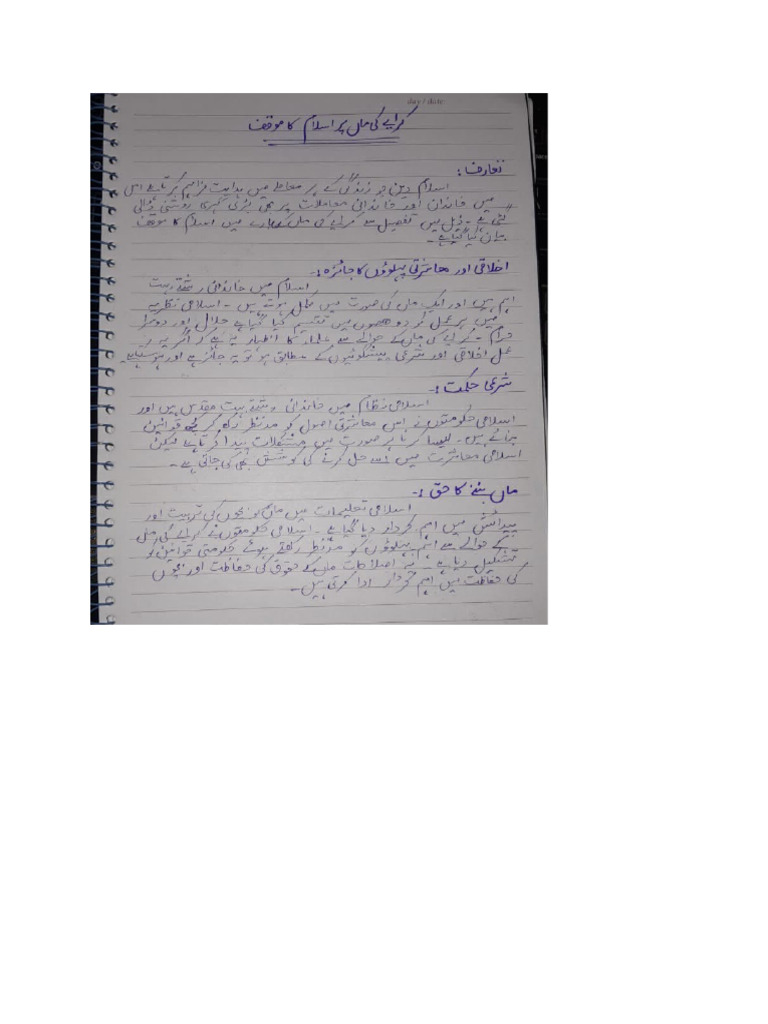 day / date
کرایے کی ماں پر اسلام کا موقف
تعارف:
اسلام دین جو زندگی کے ہر معاملے میں ہدایت فراہم کرتا ہے اس
میں خاندان اور خاندانی معاملات پر بھی بڑی گہری روشنی ڈالی
گئی ہے۔ ذیل میں تفصیل سے کرایے کی ماں کے بارے میں اسلام کا موقف
بیان کیا گیا ہے۔
اخلاقی اور معاشرتی پہلوؤں کا جائزہ:۔
اسلام میں خاندانی رشتے بہت
اہم ہیں اور ایک ماں کی صورت میں مکمل ہوتے ہیں۔ اسلامی نظریہ
میں ہر عمل کو دو حصوں میں تقسیم کیا گیا ہے حلال اور دوسرا
حرام۔ کرایے کی ماں کے حوالے سے علماء کا اظہار یہ ہے کہ اگر یہ
عمل اخلاقی اور شرعی کے مطابق ہو تو یہ جائز ہے اور
شرعی حکمت:۔
اسلامی نظام میں خاندانی رشتے بہت مقدس ہیں اور
اسلامی حکومتوں نے اس معاشرتی اصول کو مدنظر رکھ کر کچھ قوانین
بنائے ہیں۔ ایسا کرنا ہر صورت میں مشکلات پیدا کرتا ہے لیکن
اسلامی معاشرت میں اسے حل کرنے کی کوشش بھی کی جاتی ہے۔
ماں بننے کا حق:۔
اسلامی تعلیمات میں ماں کو بچوں کی تربیت اور
پیدائش میں اہم کردار دیا گیا ہے۔ اسلامی حکومتوں نے کرایے کی ماں
کے حوالے سے اہم پہلوؤں کو مدنظر رکھتے ہوئے حکومتی قوانین کو
تشکیل دیا ہے۔ یہ اصلاحات ماں کے حقوق کی حفاظت اور بچوں
کی حفاظت میں اہم کردار ادا کرتی ہیں۔